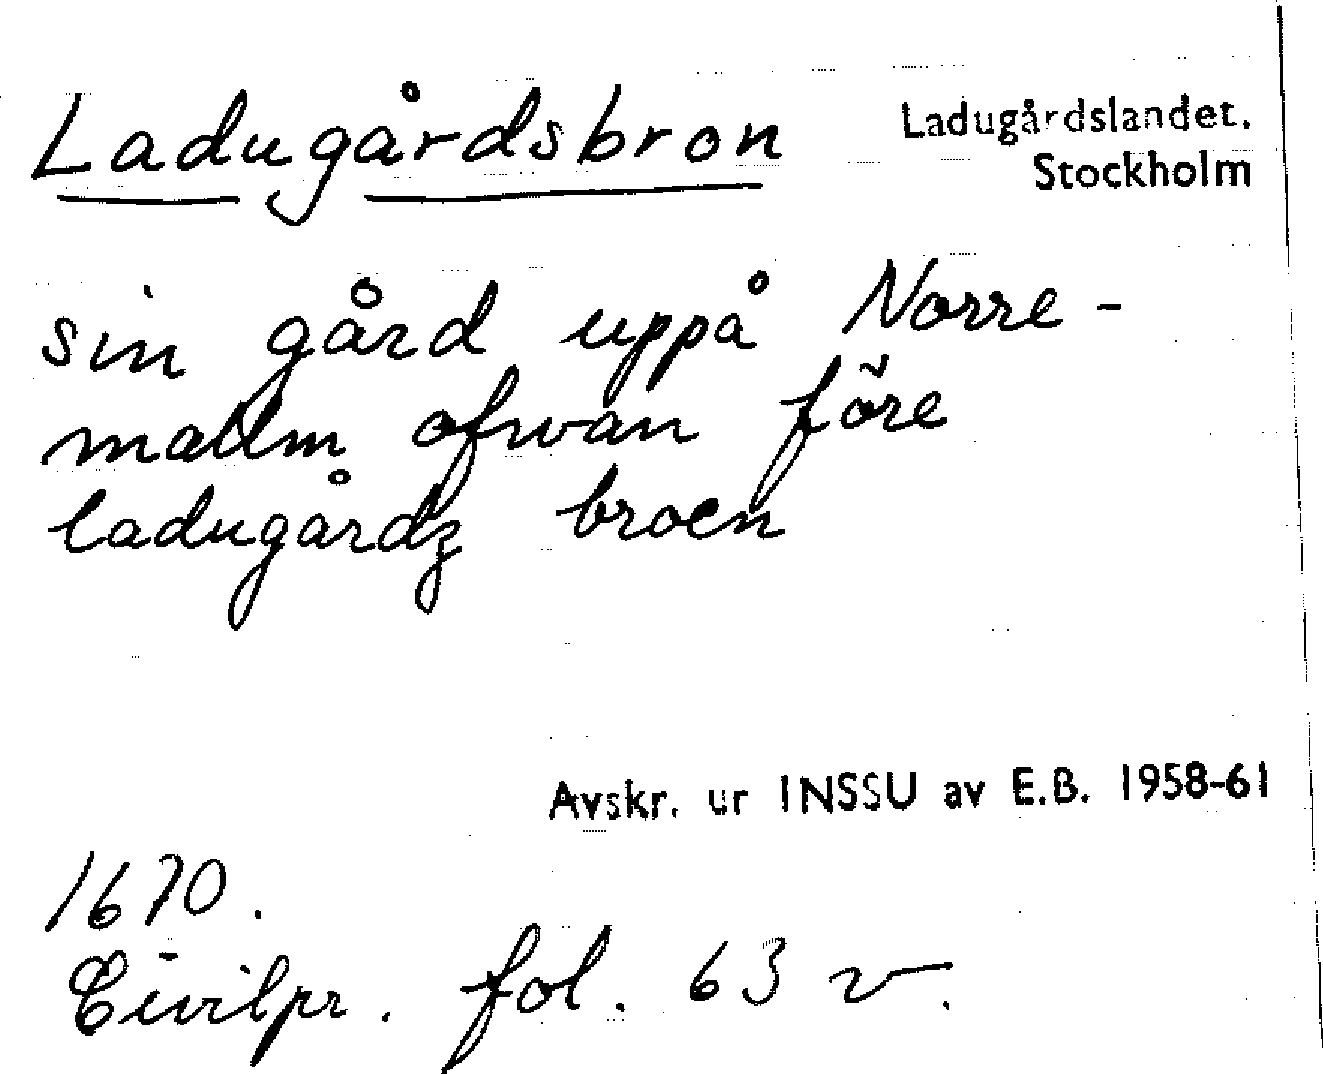 Ladugårdsbron
Ladugårdslandet.
Stockholm
sin gård uppå Norre-
mallm ofwan före
ladugårdz broen
Avskr. ur INSSU av E.B. 1958-61
1670.
Civilpr. fol. 63 v.